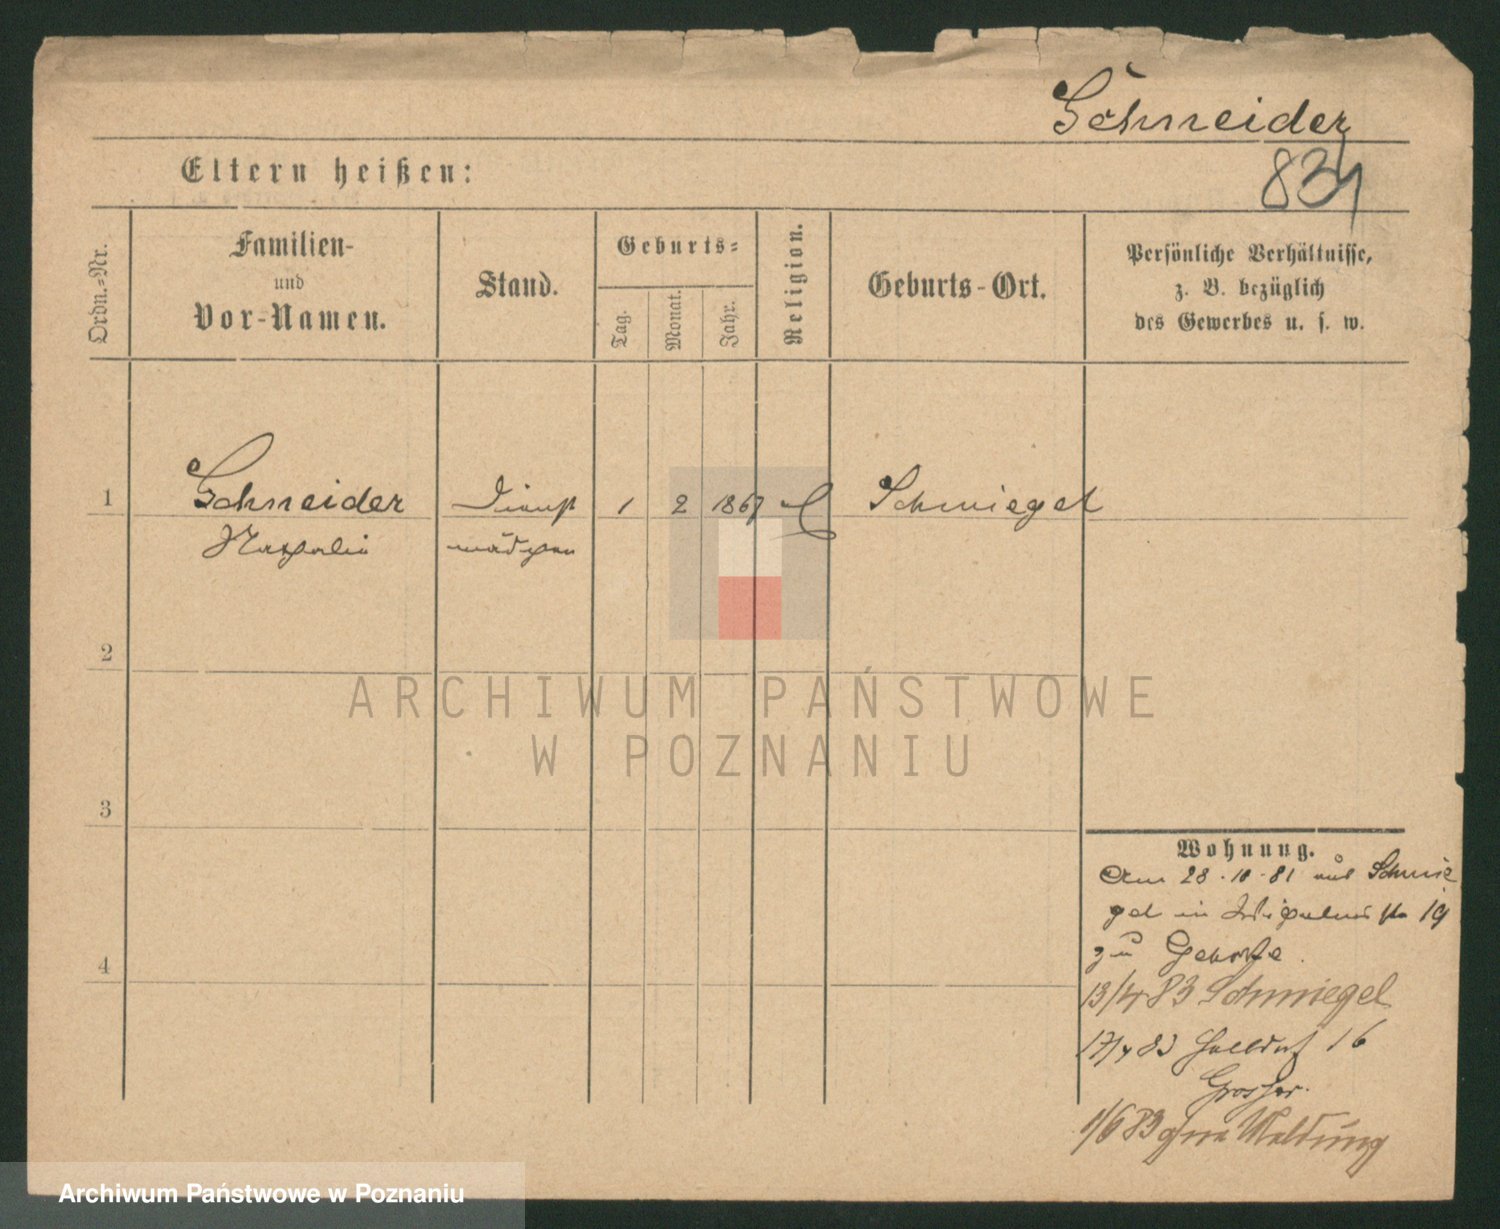 Schneider
834
Eltern heißen:
Ordn.-Nr.
Familien-
und
Vor-Namen.
Stand.
Geburts-
Tag.
Monat.
Jahr.
Religion.
Geburts-Ort.
Persönliche Verhältnisse,
z. B. bezüglich
des Gewerbes u. s. w.
1 Schneider Dienst 1 2 1867 Schmiegel
Nathalie mädchen
2
3
4
Wohnung.
Am 28.10.81 aus Schmie
gel in 19
zu
13/4 83 Schmiegel
17/4 83 Halbdorf 16
1/6 83 ohne Meldung
ARCHIWUM PAŃSTWOWE
W POZNANIU
Archiwum Państwowe w Poznaniu